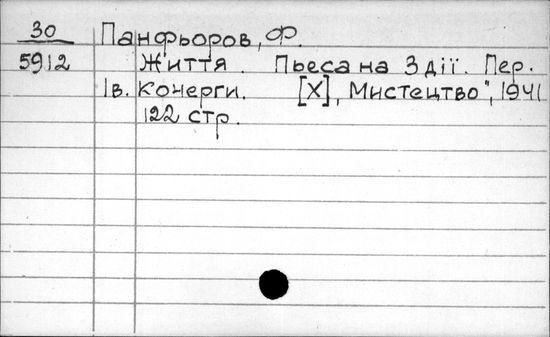 30 Панфьоров, Ф.
5912 Життя. Пьеса на 3 дії. Пер.
Ів. Кочерги. [Х], Мистецтво", 1941
122 стр.